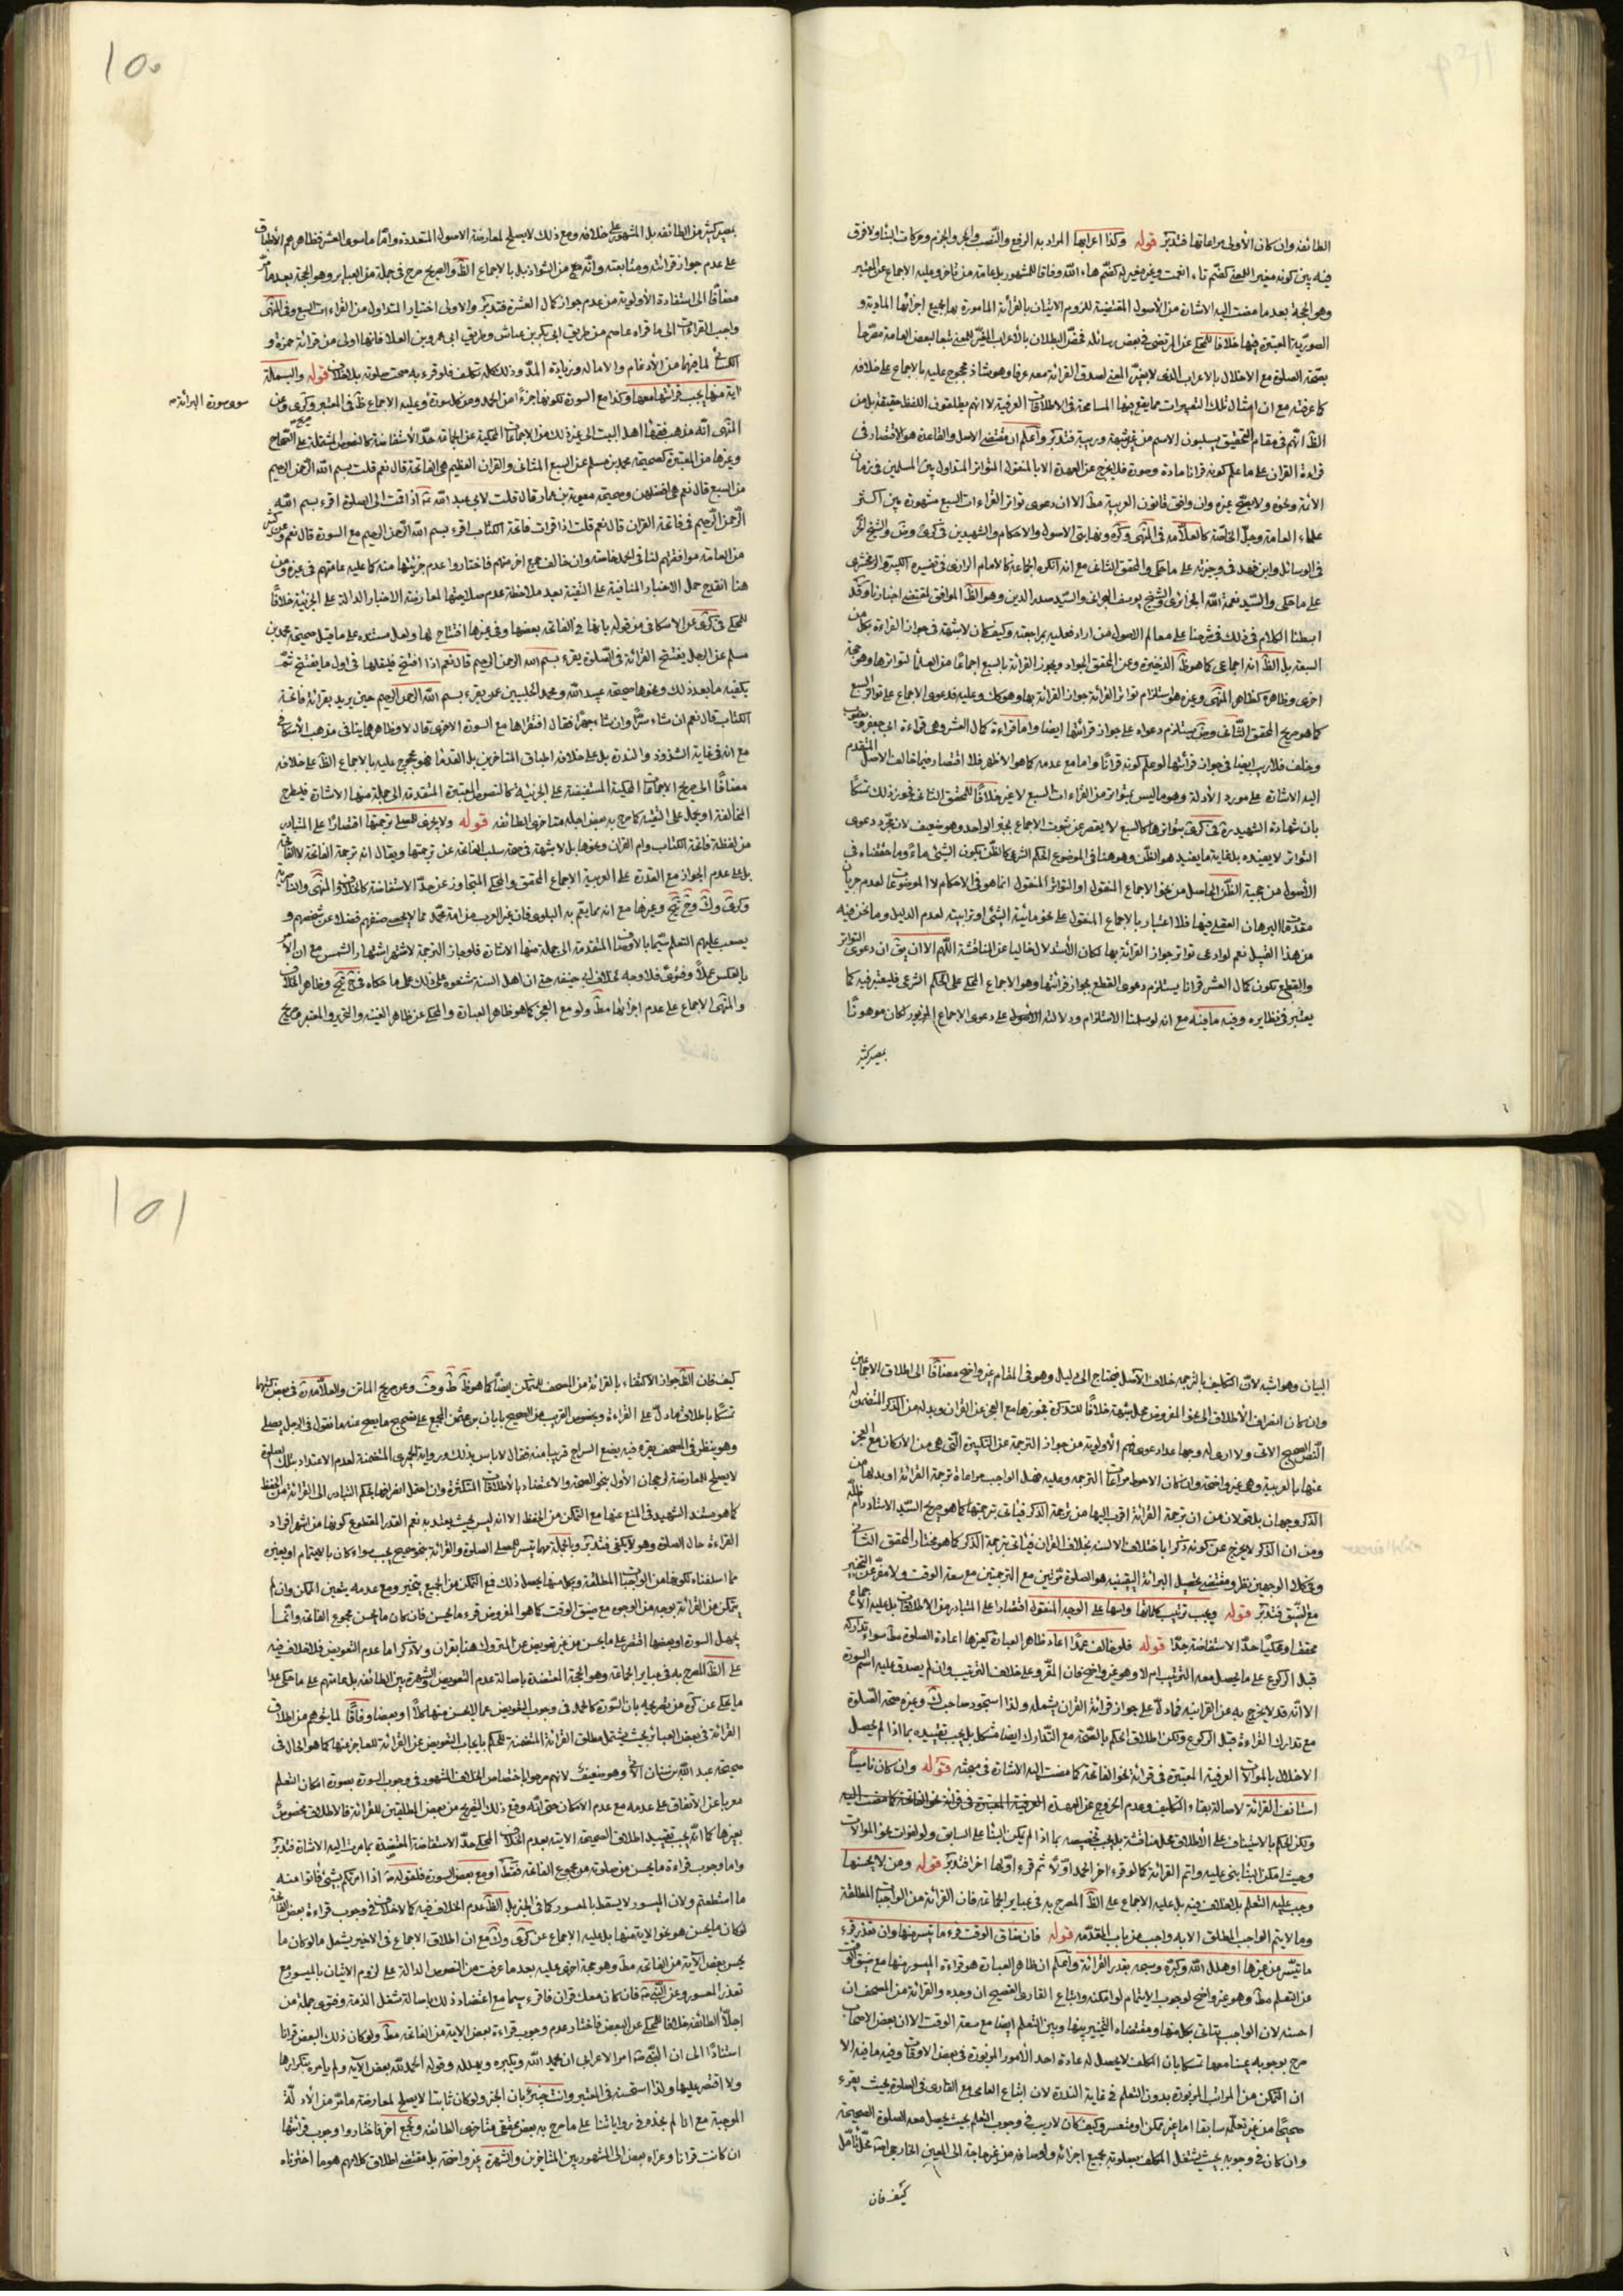 ١٥٠
الطائفه وان كان الأولى مراعاتها فتدبّر قوله وكذا اعرابها المراد به الرفع والنّصب والجر والجزم وحركات البناء ولا فرق
فيه بين كونه مغير اللمعنى كضم تاء انعمت وغير مغير له كضم هاء اللّه وفاقا للمشهور بل عامة من تاخر وعليه الاجماع عن المعتبر
وهو الحجة بعد ما مضت اليه الاشارة من الأصول المقتضية للزوم الاتيان بالقرائة المامورة بها بجميع اجزائها المادية و
الصورية المعتبرة فيها خلافا للمحكى عن المرتضى فى بعض رسائله فخصّ البطلان بالأعراب المغيّر للمعنى تبعا لبعض العامة مصرّحا
بصحة الصلوة مع الاخلال بالاعراب الذى لا يغيّر المعنى لصدق القرائة معه عرفا وهو شاذ محجوج عليه بالاجماع على خلافه
كما عرفته مع ان امثال تلك التغييرات مما يقع فيها المسامحة فى الاطلاقات العرفية لا انهم يطلقون اللفظ حقيقة بل من
الظّ انّهم فى مقام التحقيق يسلبون الاسم من غير شبهة وريبة فتدبّر واعلم ان مقتضى الاصل والقاعدة هو الاقتصار فى
قراءة القران على ما علم كونه قرانا مادة وصورة فلا يخرج عن العهدة الا بالمنقول المتواتر المتداول بين المسلمين فى زمان
الأئمة ونحوه ولا يصحّ غيره وان وافق قانون العربية مط الا ان دعوى تواتر القراءات السبع مشهورة بين اكثر
علماء العامة وجلّ الخاصّة كالعلاّمة فى المنتهى وكره ونهايتى الاصول والاحكام والشهيدين فى كرى وض والشيخ الحر
فى الوسائل وابن فهد فى وجيزته على ما حكى والمحقق الثانى مع انه انكره الجماعة كالامام الرازى فى تفسيره الكبير والزمخشرى
على ما حكى والسّيد نعمة اللّه الجزائرى والشيخ يوسف البحرانى والسّيد صدر الدين وهو الظّ الموافق لمقتضى اخبارنا وقد
ابسطنا الكلام فى ذلك فى شرحنا على معالم الاصول من اراد فعليه بمراجعته وكيف كان لا شبهة فى جواز القراءة بكل من
السبعة بل الظّ انه اجماعى كما هو ظّ الذخيرة وعن المحقق الجواد ويجوز القرائة بالسبع اجماعًا من العلماء لتواترها وهو حجة
اخرى وظاهره كظاهر المنتهى وغيره هو استلزام تواتر القرائة جواز القرائة بها وهو كك وعليه فدعوى الاجماع على تواتر السبع
كما هو صريح المحقق الثّانى وض يستلزم دعواه على جواز قرائتها ايضا واما قراءة كمال العشر وهى قراءة ابى جعفر ويعقوب
وخلف فلا ريب ايضا فى جواز قرائتها لو علم كونه قرانًا واما مع عدمه كما هو الاظهر فلا اقتصار فيما خالف الاصل المتقدم
اليه الاشارة على مورد الأدلة وهو ما ليس بمتواتر من القراءات السبع لا غير خلافًا للمحقق الثانى فجوز ذلك تمسّكا
بان شهادة الشهيد ره فى كرى بتواترها كالسبع لا يقصر عن ثبوت الاجماع بخبر الواحد وهو ضعيف لان مجرّد دعوى
التواتر لا يفيده بل غاية ما يفيد هو الظّن وهو هنا فى الموضوع الحكم الشرعى كالظّن بكون الشئ ماءً وما حققناه فى
الأصول من حجية الظّن الحاصل من نحو الاجماع المنقول او التواتر المنقول انما هو فى الاحكام لا الموضوعات لعدم جريان
مقدمات البرهان العقلى فيها فلا اعتبار بالاجماع المنقول على نحو مائية الشئ او ترابيته لعدم الدليل وما نحن فيه
من هذا القبيل نعم لو ادعى تواتر جواز القرائة بها لكان الأستدلال خاليا عن المناقشة اللّهم الا ان يق ان دعوى التواتر
والقطع بكون كمال العشر قرانا يستلزم دعوى القطع بجواز قرائتها وهو الاجماع المحكى على الحكم الشرعى فليعتبر فيه كما
يعتبر فى نظايره وفيه ما فيه مع انه لو سلمنا الاستلزام ودلالته على دعوى الاجماع المزبور لكان موهونًا
بمصير كثير
بمصير كثير من الطائفه بل المشهور على خلافه ومع ذلك لا يصلح لمعارضة الاصول المتعددة وامّا ما سوى العشر فظاهرهم الأطباق
على عدم جواز قرائته ومتابعته وانّه مع من الشواذ بل بالاجماع الظّ والصريح صرح فى جملة من العباير وهو الحجة بعد ما مر
مضافًا الى استفادة الأولوية من عدم جواز كمال العشرة فتدبّر والاولى اختيار المتداول من القراءات السبع وفى المنتهى
واحب القراءات الى ما قراه عاصم من طريق ابى بكر بن عياش وطريق ابى عمرو بن العلا فانها اولى من قرائة حمزة و
الكسائى لما فيهما من الأدغام والاماله وزيادة المدّ وذلك كله تكلف فلو قرء به صحت صلوته بلا خلاف قوله والبسملة
اية منها يجب قرائتها معها وكذا مع السورة لكونها جزءًا من الحمد ومن كل سورة وعليه الاجماع ظ فى المعتبر وكرى وعن
سوى سورة البرائة
المنتهى انّه مذهب فقهاء اهل البيت الى غير ذلك من الاجماعات المحكية عن الجماعة حدّ الأستفاضة كالنصوص المشتملة على الصحاح
وغيرها من المعتبرة كصحيحة محمد بن مسلم عن السبع المثانى والقران العظيم هى الفاتحة قال نعم قلت بسم اللّه الرّحمن الرحيم
من السبع قال نعم هى افضلهن وصحيحة معوية بن عمار قال قلت لابى عبد اللّه ع اذا قمت الى الصلوة اقرء بسم اللّه
الرّحمن الرّحيم فى فاتحة القران قال نعم قلت اذا قرات فاتحة الكتاب اقرء بسم اللّه الرّحمن الرحيم مع السورة قال نعم وعن كثير
من العامة موافقتهم لنا فى الحمد خاصة وان خالف جمع اخر منهم فاختاروا عدم جزئيتها منه كما عليه عامتهم فى غيره ومن
هنا انقدح حمل الاخبار المنافية على التقية بعد ملاحظة عدم صلاحيتها لمعارضة الاخبار الدالة على الجزئية خلافًا
للمحكى فى كرى عن الاسكافى من قوله بانها فى الفاتحه بعضها وفى غيرها افتتاح لها ولعل مستنده على ما قيل صحيحة محمد بن
مسلم عن الرجل يفتتح القرائة فى الصّلوة يقرء بسم اللّه الرحمن الرحيم قال نعم اذا افتتح فليقلها فى اول ما يفتتح ثم
يكفيه ما بعد ذلك ونحوها صحيحة عبيد اللّه ومحمد الحلبيين عمن يقرء بسم اللّه الرحمن الرحيم حين يريد يقرائة فاتحة
الكتاب قال نعم ان شاء سرًّا وان شاء جهرًا فقال افنقراها مع السورة الاخرى قال لا وظاهرهما ينافى مذهب الأسكافى
مع انه فى غاية الشذوذ والندرة بل على خلافه اطباق المتاخرين بل القدماء فهو محجوج عليه بالاجماع الظّ على خلافه
مضافًا الى صريح الاجماعات المحكية المستفيضة على الجزئية كالنصوص المعتبرة المتقدمة الى جملة منها الاشارة فليطرح
المخالفة او يحمل على التقية كما صرح به بعض اجلة متاخرى الطائفه قوله ولا يجزى للمصلى ترجمتها اقتصارًا على المتبادر
من لفظة فاتحة الكتاب وام القران ونحوها بل لا شبهة فى صحة سلب الفاتحة عن ترجمتها ويقال انه ترجمة الفاتحة لا الفاتحة
بل على عدم الجواز مع القدرة على العربية الاجماع المحقق والمحكى المتجاوز عن حدّ الاستفاضة كالخلاف والمنتهى والناصرية
وكرى وك وخ تج وغيرها مع انه مما يعمّ به البلوى فان غير العرب من امة محمّد مما لا يحصى صنفهم فضلا عن شخصهم و
يصعب عليهم التعلم سيّما بالاوصاف المتقدمة الى جملة منها الاشارة فلو جاز الترجمة لاشتهر اشتهار الشمس مع ان الأمر
بالعكس عملًا وفتوىً فلا وجه لخلاف ابى حنيفة حتى ان اهل السنة شنعوه على ذلك على ما حكاه فى تج وظاهر الخلاف
والمنتهى الاجماع على عدم اجزائها مط ولو مع العجز كما هو ظاهر العبارة والمحكى عن ظاهر الغنية والتحرير والمعتبر وصريح
١٥١
البيان وهو اشبه لان التكليف بالترجمة خلاف الأصل فيحتاج الى دليل وهو فى المقام غير واضح مضافًا الى اطلاق الاجماعين
وان كان انصراف الأطلاق الى نحو المفروض محل شبهة خلافًا للتذكرة فجوزها مع العجز عن القران وبدله من الذكر المتضمن له
النّص الصحيح الاتى ولا ارى له وجها عدا دعوى فهم الأولوية من جواز الترجمة عن التكبيرة الّتى هى من الاركان مع العجز
عنها بالعربية وهى غير واضحة وان كان الاحوط مراعات الترجمة وعليه فهل الواجب مراعاة ترجمة القرائة او بدلها من
الذكر وجهان بل قولان من ان ترجمة القرائة اقرب اليها من ترجمة الذكر فياتى بترجمتها كما هو صريح السّيد الاستاد دام ظله
ومن ان الذكر لا يخرج عن كونه ذكرا باختلاف الالسنة بخلاف القران فياتى بترجمة الذكر كما هو مختار المحقق الثانى
وفى كلا الوجهين نظر ومقتضى تحصيل البرائة اليقينيه هو الصلوة مرّتين مع الترجمتين مع سعة الوقت ولا مفرّ عن التخيير
مع الضّيق فتدبّر قوله ويجب ترتيب كلماتها وايها على الوجه المنقول اقتصارا على المتبادر من الاطلاقات بل عليه الاجماع
محققا ومحكيًا حدّ الاستفاضة جدًا قوله فلو خالف عمدًا اعاد ظاهر العبارة كغيرها اعادة الصلوة مط سواء تداركه
قبل الركوع على ما يحصل معه الترتيب ام لا وهو غير واضح فان المقرّو على خلاف الترتيب وان لم يصدق عليه اسم السورة
الا انّه قد لا يخرج به عن القرانية فما دلّ على جواز قرائة القران يشمله ولذا استجود صاحب ك وغيره صحة الصّلوة
مع تدارك القراءة قبل الركوع ولكن اطلاق الحكم بالصّحة مع التّدارك ايضا مشكل بل يجب تقييده بما اذا لم يحصل
الاخلال بالموالات العرفية المعتبرة فى قرائة نحو الفاتحة كما مضت اليه الاشارة فى مبحثه قوله وان كان ناسيًا
استانف القرائة لاصالة بقاء التكليف وعدم الخروج عن العهدة
ولكن الحكم بالاستيناف على الأطلاق محل مناقشة بل يجب تخصيصه بما اذا لم يكن البناء على السابق ولو لفوات نحو الموالات
وحيث امكن البناء بنى عليه واتم القرائة كما لو قرء اخر الحمد اوّلًا ثم قرء اوّلها اخرا فتدبّر قوله ومن لا يحسنها
وجب عليه التعلم بلا خلاف فيه بل عليه الاجماع على الظّ المصرح به فى عباير الجماعة فان القرائة من الواجبات المطلقة
وما لا يتم الواجب المطلق الا به واجب من باب المقدمة قوله فان ضاق الوقت قرء ما تيسر منها وان تعذر قرء
ما تيسّر من غيرها او هلل اللّه وكبّره وسبحه بقدر القرائة واعلم ان ظاهر العبارة هو قراءة الميسور منها مع ضيق الوقت
عن التعلم مط وهو غير واضح لوجوب الايتمام لو امكنه واتباع القارى الفصيح ان وجده والقرائة من المصحف ان
احسنه لان الواجب يتاتى بكل منها ومقتضاه التخيير بينها وبين التعلم ايضا مع سعة الوقت الا ان بعض الاصحاب
صرح بوجوبه عينا معها تمسكا بان المكلف لا يحصل له عادة احد الأمور المزبورة فى بعض الاوقات وفيه ما فيه الا
ان التمكن من المراتب المزبورة بدون التعلم فى غاية الندرة لان اتباع العامى مع القارى فى الصلوة بحيث يقرء
صحيحًا من غير تعلّم سابقا اما غير ممكن او متعسر وكيف كان لا ريب فى وجوب التعلم بحيث يحصل معه الصلوة الصحيحة
وان كان فى وجوبه بحيث يشتغل المكلف بصلوته بجميع اجزائه واوصافه من غير حاجة الى المعين الخارجى محل تامّل
كيف فان
كيف فان الظّ جواز الاكتفاء بالقرائة من المصحف للمتمكن ايضًا كما هو ظّ ط وف وعن صريح الماتن والعلّامة ره فى بعض كتبهما
تمسّكا باطلاق ما دلّ على القراءة وبخصوص القريب من الصحيح بابان بن عثمن المجمع على تصحيح ما يصح عنه ما تقول فى الرجل يصلى
وهو ينظر فى المصحف يقرء فيه يضع السراج قريبا منه فقال لا باس بذلك ورواية الحميرى المتضمنة لعدم الاعتداد بتلك الصلوة
لا يصلح للمعارضة لرجحان الأول بنحو الصحة والاعتضاد بالأطلاقات المتكثرة وان احتمل انصرافها بحكم التبادر الى القرائة من الحفظ
كما هو مستند الشهيد فى المنع عنها مع التمكن من الحفظ الا انه ليس بحيث يعتد به نعم القدر المقطوع كونها من اشهر افراد
القراءة حال الصلوة وهو لا يكفى فتدبّر وبالجملة مهما تيسّر للمصلى الصلوة والقرائة بنحو صحيح يجب سواء كان بالايتمام او بغيره
مما اسلفناه لكونها من الواجبات المطلقة وبكل منها يحصل ذلك فمع التمكن من الجميع يتخير ومع عدمه يتعين الممكن وان لم
يتمكن من القرائة بوجه من الوجوه مع ضيق الوقت كما هو المفروض قرء ما يحسن فان كان ما يحسن مجموع الفاتحة وانّما
يجهل السورة او بعضها اقتصر على ما يحسن من غير تعويض عن المتروك هنا بقران ولا ذكر اما عدم التعويض فلا خلاف فيه
على الظّ المصرح به فى عباير الجماعة وهو الحجة المعتضدة باصالة عدم التعويض والشهرة بين الطائفه بل عامتهم على ما حكى عدا
ما يحكى عن كره من تصريحه بان السّورة كالحمد فى وجوب التعويض عما لا يحسن منها كلًّا او بعضا وفاقًا لما يتوهم من اطلاق
القرائة فى بعض العبائر بحيث يشتمل مطلق القرائة المتضمنة للحكم بايجاب التعويض عن القرائة للعاجز عنها كما هو الحال فى
صحيحة عبد اللّه بن سنان الاتية وهو ضعيف لانهم صرحوا باختصاص الخلاف المشهور فى وجوب السورة بصورة امكان التعلم
معربا عن الاتفاق على عدمه مع عدم الامكان حتى انّه وقع ذلك التصريح من بعض المطلقين للقرائة فالاطلاق مخصوص
بغيرها كما انّه يجب تقييد اطلاق الصحيحة الاتية بعدم الخلاف المحكى حدّ الاستفاضة المعتضدة بما مرت اليه الاشارة فتدبّر
واما وجوب قراءة ما يحسن من صلوته من مجموع الفاتحة فقط او مع بعض السورة فلقوله ص اذا امرتكم بشئ فأتوا منه
ما استطعتم ولان الميسور لا يسقط بالمعسور كما فى الخبر بل الظّ عدم الخلاف فيه كما لا خلاف فى وجوب قراءة بعض الفاتحة
لو كان ما يحسن هو نحو الاية منها بل عليه الاجماع عن كرى وك مع ان اطلاق الاجماع فى الاخير يشمل ما لو كان ما
يحسن بعض الآية من الفاتحة مط وهو حجة اخرى عليه بعد ما عرفت من النصوص الدالة على لزوم الاتيان بالميسور مع
تعذر المعسور وعن النّبى ص فان كان معك قران فاقرء به مع اعتضاد ذلك باصالة شغل الذمة وفتوى جملة من
اجلّاء الطائفه خلافا للمحكى عن البعض فاختار عدم وجوب قراءة بعض الاية من الفاتحة مط ولو كان ذلك البعض قرانا
استنادًا الى ان النّبى ص امر الاعرابى ان يحمد اللّه ويكبره ويهلله وقوله الحمد للّه بعض الآية ولم يامره بتكرارها
ولا اقتصر عليها ولذا استحسنه فى المعتبر وانت خبير بان الخبر ولو كان ثابتا لا يصلح لمعارضة ما مرّ من الأدلة
الموجبة مع انا لم نجده فى رواياتنا على ما صرح به بعض محققى متاخرى الطائفه وجمع اخر فاختاروا وجوب قرائتها
ان كانت قرانا وعزاه بعض الى المشهور بين المتاخرين والشهرة غير واضحة بل مقتضى اطلاق كلامهم هو ما اخترناه